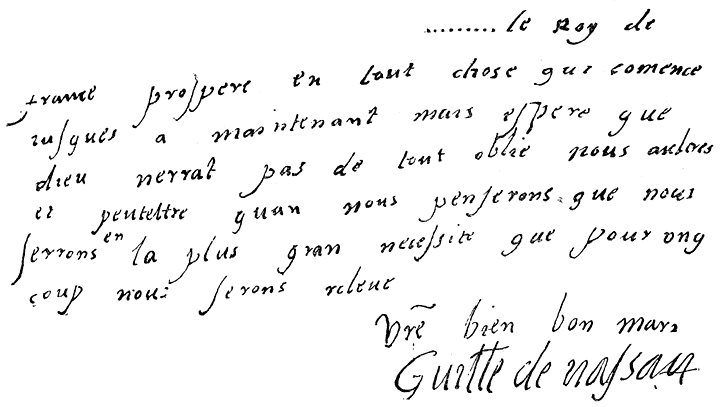 ......... le Roy de
france prospere en tout chose qui comence
jusques a maintenant mais espere que
dieu nerrat pas de tout oblie nous aultres
et peuteltre quan nous penserons que nous
serrons en la plus gran necessite que pour ung
coup nous serons releue
Vr̃e bien bon mari
Guille de nassau